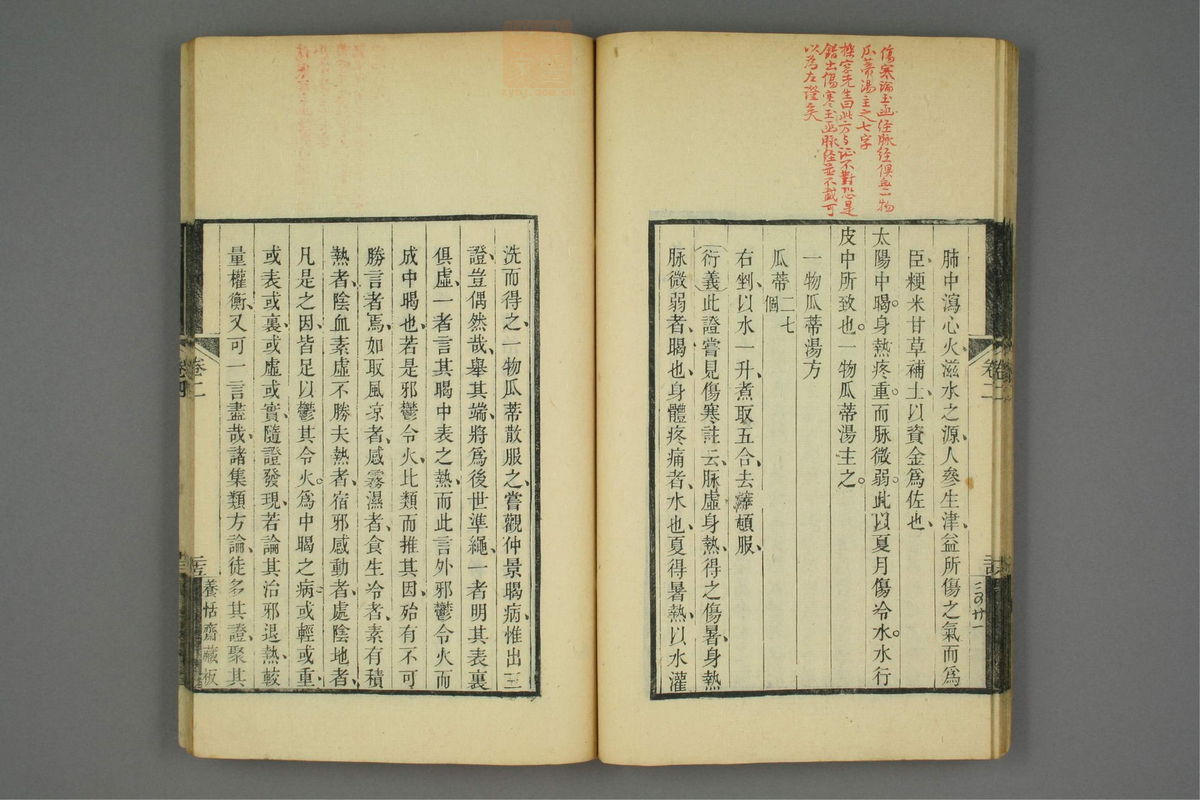 傷寒論玉函経脉経俱無一物
瓜蒂湯主之七字
櫟窓先生曰此方与証不對恐是
錯出傷寒玉函脉経並不載可
以為左證矣
肺中瀉心火滋水之源人參生津益所傷之氣而爲
臣粳米甘草補土以資金爲佐也
太陽中暍身熱疼重而脉微弱此以夏月傷冷水水行
皮中所致也一物瓜蒂湯主之
一物瓜蒂湯方
瓜蒂二七個
右剉以水一升煮取五合去䔒頓服
衍義此證嘗見傷寒註云脉虛身熱得之傷暑身熱
脉微弱者暍也身體疼痛者水也夏得暑熱以水灌
洗而得之一物瓜蒂散服之嘗觀仲景暍病惟出三
證豈偶然哉舉其端將爲後世準繩一者明其表裏
俱虛一者言其暍中表之熱而此言外邪鬱令火而
成中暍也若是邪鬱令火比類而推其因殆有不可
勝言者焉如取風凉者感霧濕者食生冷者素有積
熱者陰血素虛不勝夫熱者宿邪感動者處陰地者
凡是之因皆足以鬱其令火爲中暍之病或輕或重
或表或裏或虛或實隨證發現若論其治邪退熱較
量權衡又可一言盡哉諸集類方論徒多其證聚其
卷二
養恬齋藏板